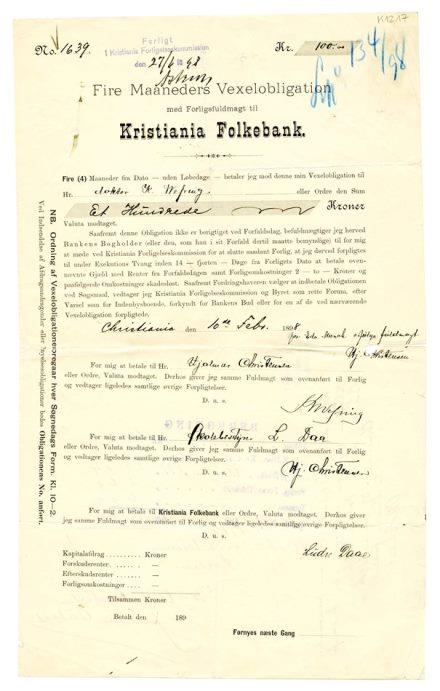 K1217
No. 1639.
Forligt
i Kristiania Forligelseskommission
den 27/6 1898
Kr. 100.00
134/98
Fire Maaneders Vexelobligation
med Forligsfuldmagt til
Kristiania Folkebank.
Fire (4) Maaneder fra Dato — uden Løbedage — betaler jeg mod denne min Vexelobligation til
Hr. doktor K. Wefring eller Ordre den Sum
Et Hundrede Kroner
Valuta modtaget.
Saafremt denne Obligation ikke er berigtiget ved Forfaldsdag, befuldmægtiger jeg herved
Bankens Bogholder (eller den, som han i sit Forfald dertil maatte bemyndige) til for mig
at møde ved Kristiania Forligelseskommission for at slutte saadant Forlig, at jeg derved forpligtes
til under Exekutions Tvang inden 14 — fjorten — Dage fra Forligets Dato at betale oven-
nævnte Gjæld med Renter fra Forfaldsdagen samt Forligsomkostninger 2 — to — Kroner og
paafølgende Omkostninger skadesløst. Saafremt Fordringshaveren vælger at indbetale Obligationen
ved Søgsmaal, vedtager jeg Kristiania Forligelseskommission og Byret som rette Forum, efter
Varsel som for Indenbysboende, forkyndt for Bankens Bud eller for en af de ved nærværende
Vexelobligation forpligtede.
Christiania den 10de Febr. 1898
Hj. Christensen
For mig at betale til Hr. Hjalmar Christensen
eller Ordre, Valuta modtaget. Derhos giver jeg samme Fuldmagt som ovenanført til Forlig
og vedtager ligeledes samtlige øvrige Forpligtelser.
D. u. s.
K Wefring
For mig at betale til Hr. Skolebestyr. L. Daa
eller Ordre, Valuta modtaget. Derhos giver jeg samme Fuldmagt som ovenanført til Forlig
og vedtager ligeledes samtlige øvrige Forpligtelser.
D. u. s.
Hj. Christensen
For mig at betale til Kristiania Folkebank eller Ordre, Valuta modtaget. Derhos giver
jeg samme Fuldmagt som ovenanført til Forlig og vedtager ligeledes samtlige øvrige Forpligtelser.
D. u. s.
Ludv. Daae
Kapitalafdrag .......... Kroner
Forskudsrenter .......... —
Efterskudsrenter ........ —
Forligsomkostninger .... —
Tilsammen Kroner
Betalt den / 189
Fornyes næste Gang
NB. Ordning af Vexelobligationer foregaar hver Søgnedags Form. Kl. 10—2.
Ved Indsendelse af Afdragssedler eller Fornyelsesobligationer bedes Obligationens No. anført.